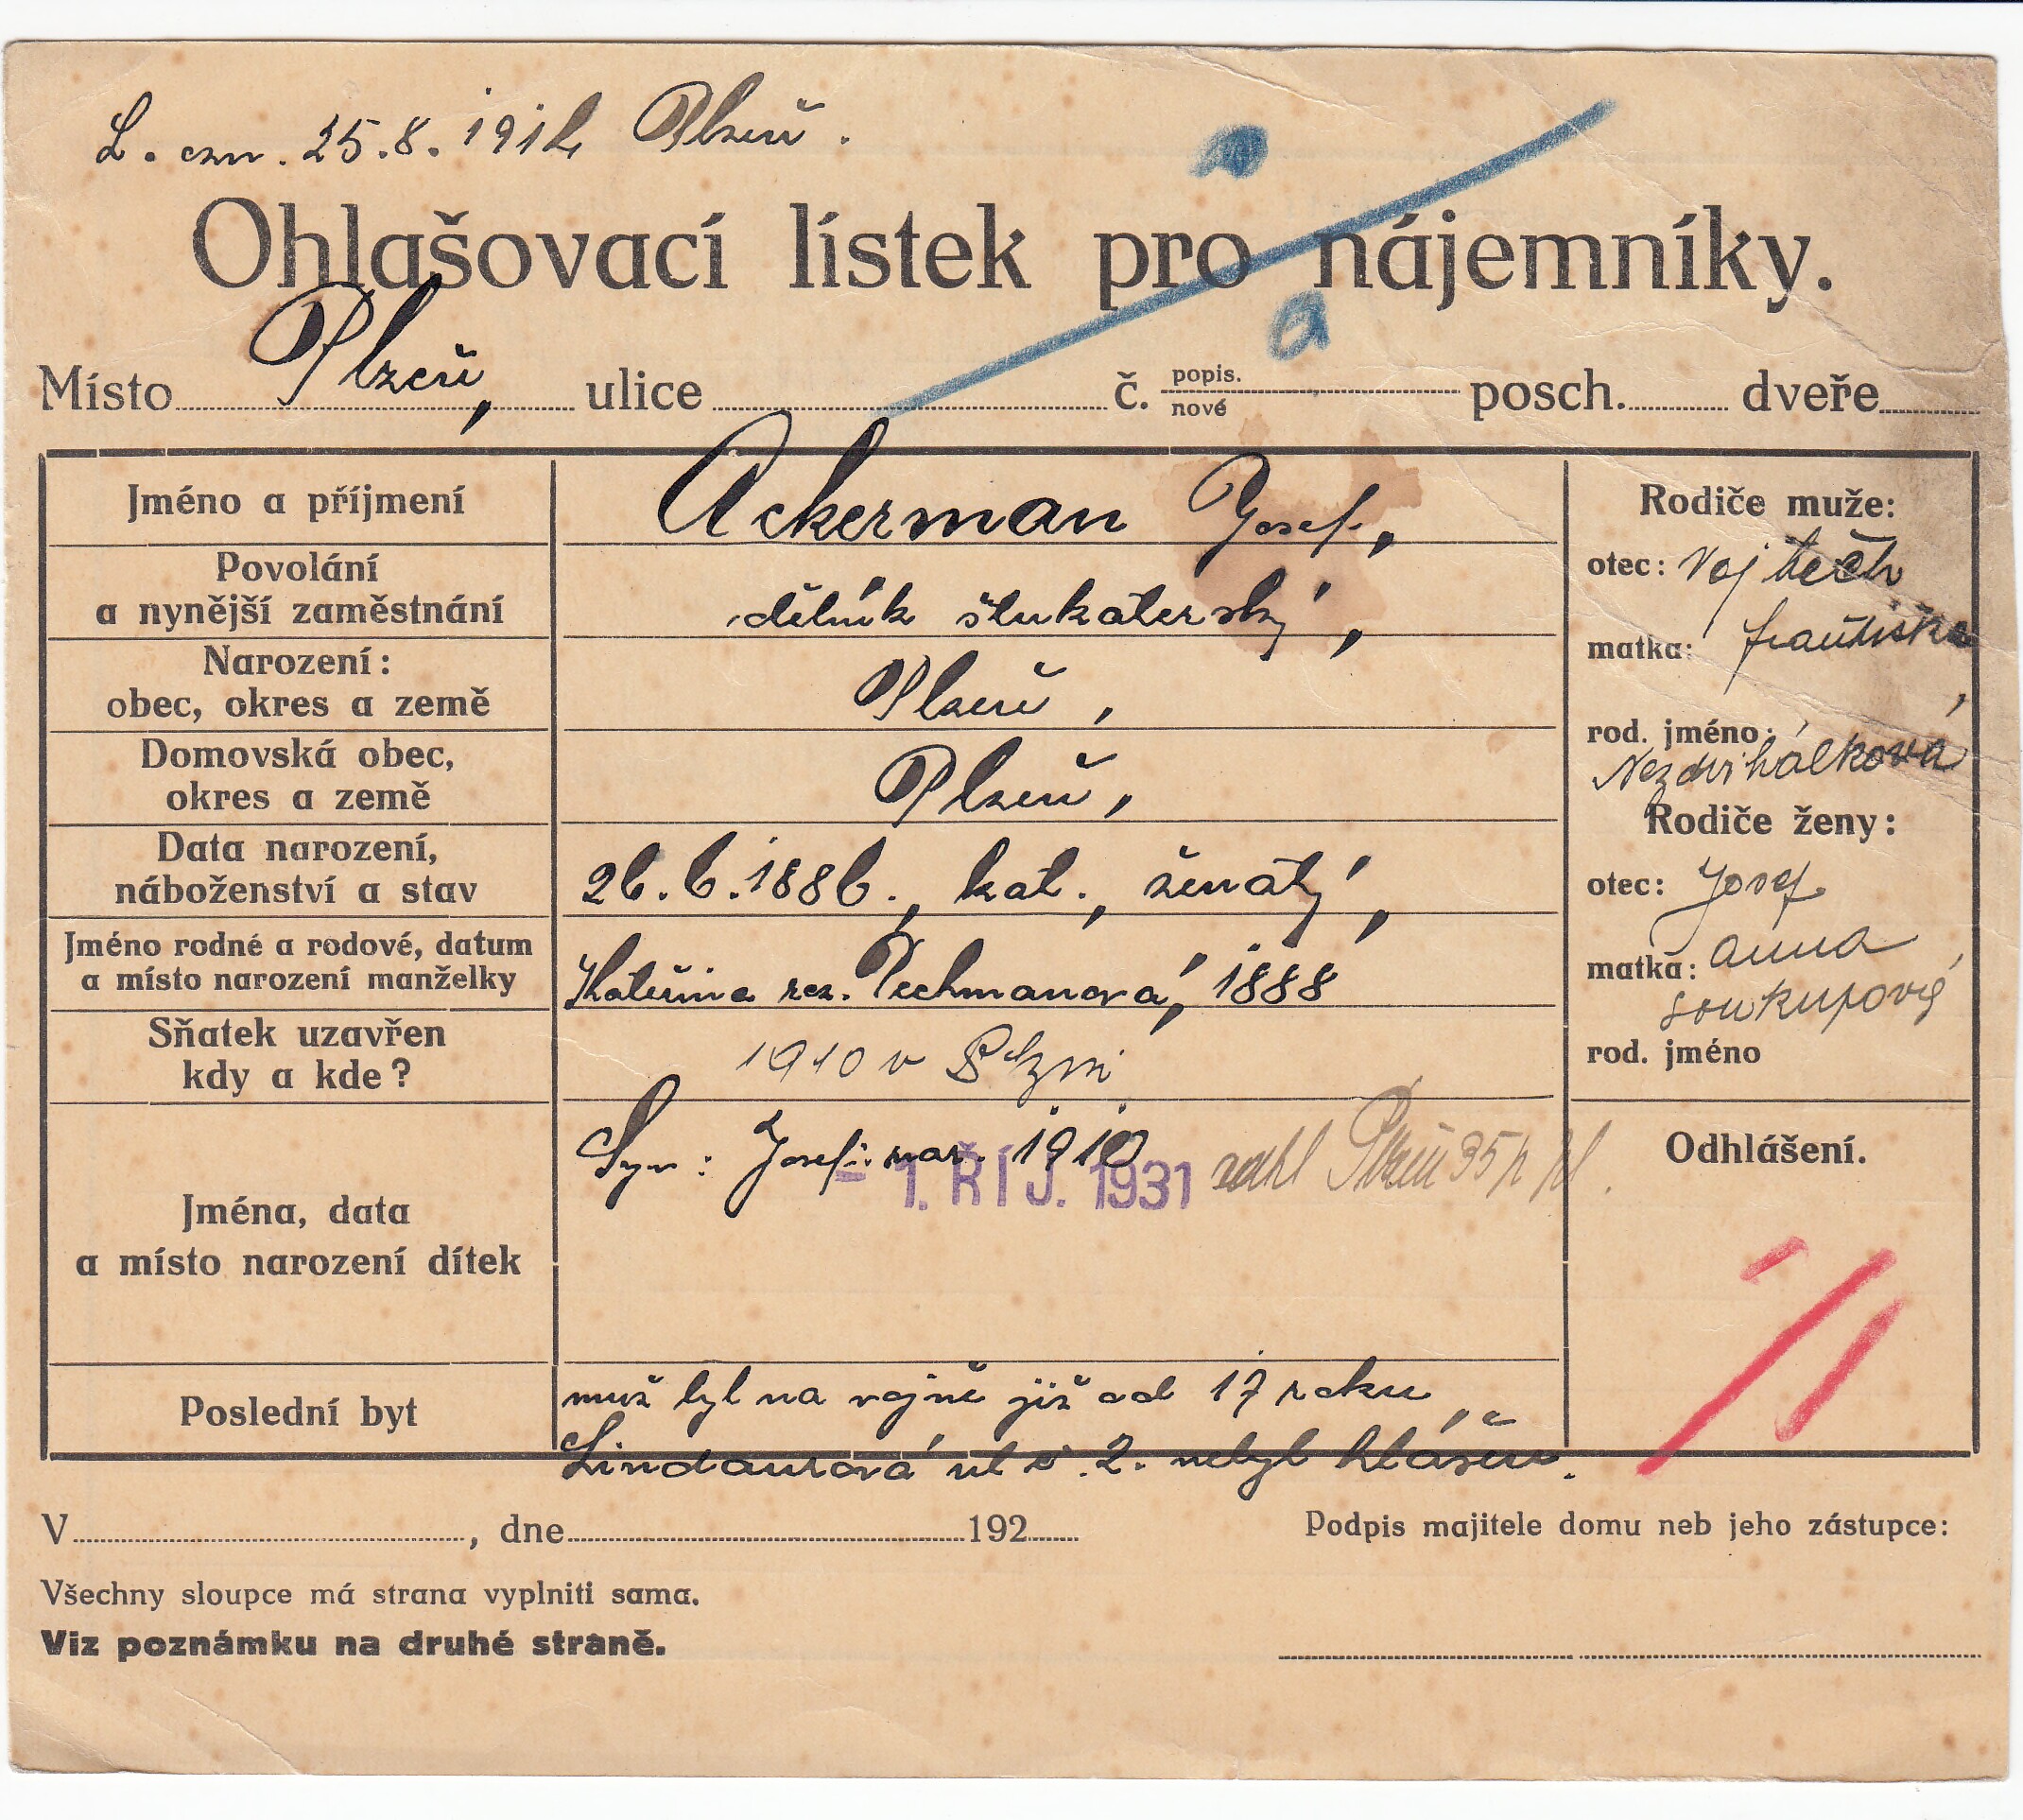 L. ozn. 25.8.1914 Plzeň.
Ohlašovací lístek pro nájemníky.
Místo Plzeň, ulice č. popis. nové posch. dveře
Jméno a příjmení Ackerman Josef,
Povolání a nynější zaměstnání dělník štukaterský,
Narození: obec, okres a země Plzeň,
Domovská obec, okres a země Plzeň,
Data narození, náboženství a stav 26.6.1886., kat., ženatý,
Jméno rodné a rodové, datum a místo narození manželky Kateřina roz. Pechmanová, 1888
Sňatek uzavřen kdy a kde? 1910 v Plzni
Jména, data a místo narození dítek Syn: Josef: nar. 1910
- 1. ŘÍJ. 1931 Plzeň 35
Poslední byt muž byl na vojně již od 17 roku,
Lindaurová ul č. 2. nebyl hlášen.
Rodiče muže:
otec: Vojtěch
matka: Františka,
rod. jméno: Nezdvihálková
Rodiče ženy:
otec: Josef
matka: Anna
Soukupová
rod. jméno
Odhlášení.
V , dne 192 Podpis majitele domu neb jeho zástupce:
Všechny sloupce má strana vyplniti sama.
Viz poznámku na druhé straně.